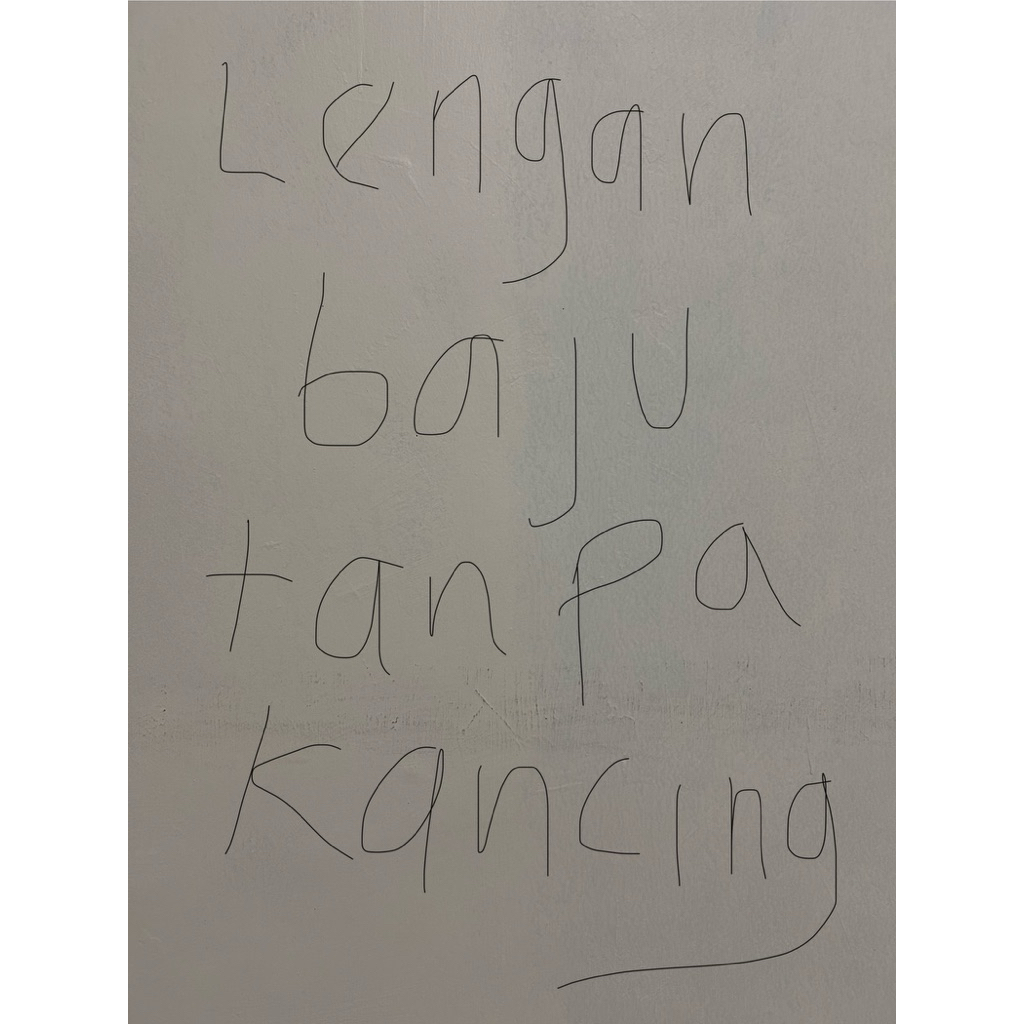 Lengan
baju
tanpa
kancing